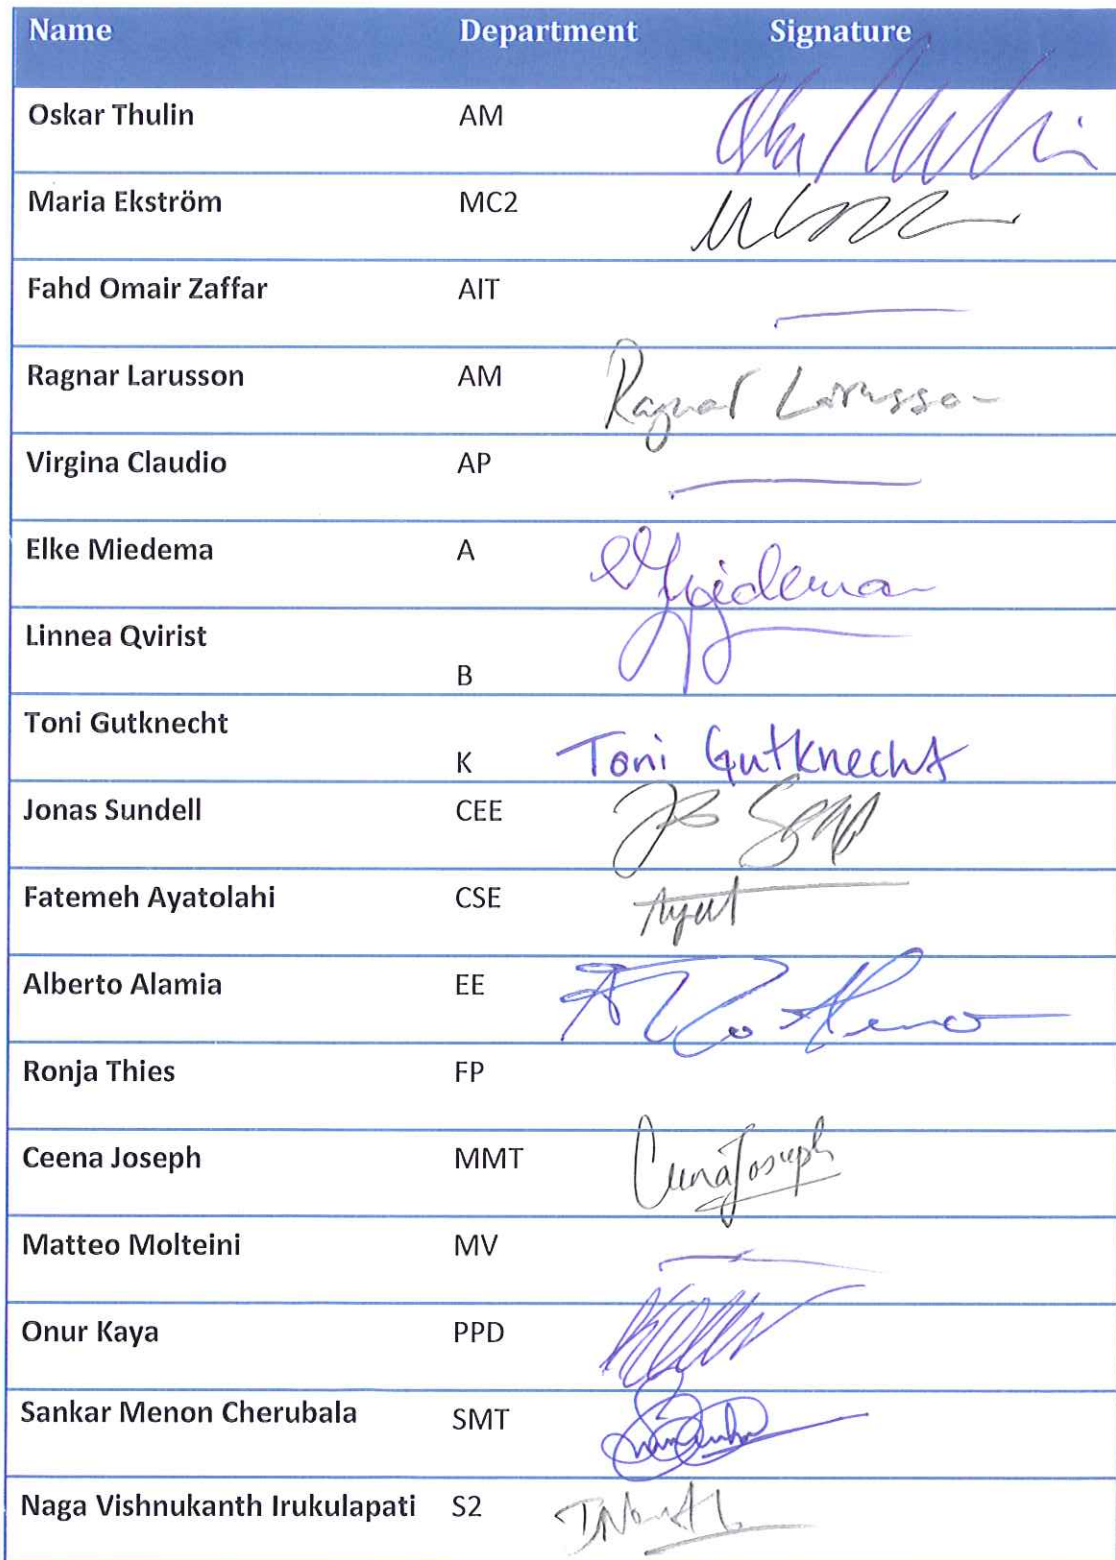 Name Department Signature
Oskar Thulin AM
Maria Ekström MC2
Fahd Omair Zaffar AIT
Ragnar Larusson AM Ragnar Larusson
Virgina Claudio AP
Elke Miedema A EMiedema
Linnea Qvirist
B
Toni Gutknecht
K Toni Gutknecht
Jonas Sundell CEE
Fatemeh Ayatolahi CSE
Alberto Alamia EE
Ronja Thies FP
Ceena Joseph MMT Ceena Joseph
Matteo Molteini MV
Onur Kaya PPD
Sankar Menon Cherubala SMT
Naga Vishnukanth Irukulapati S2